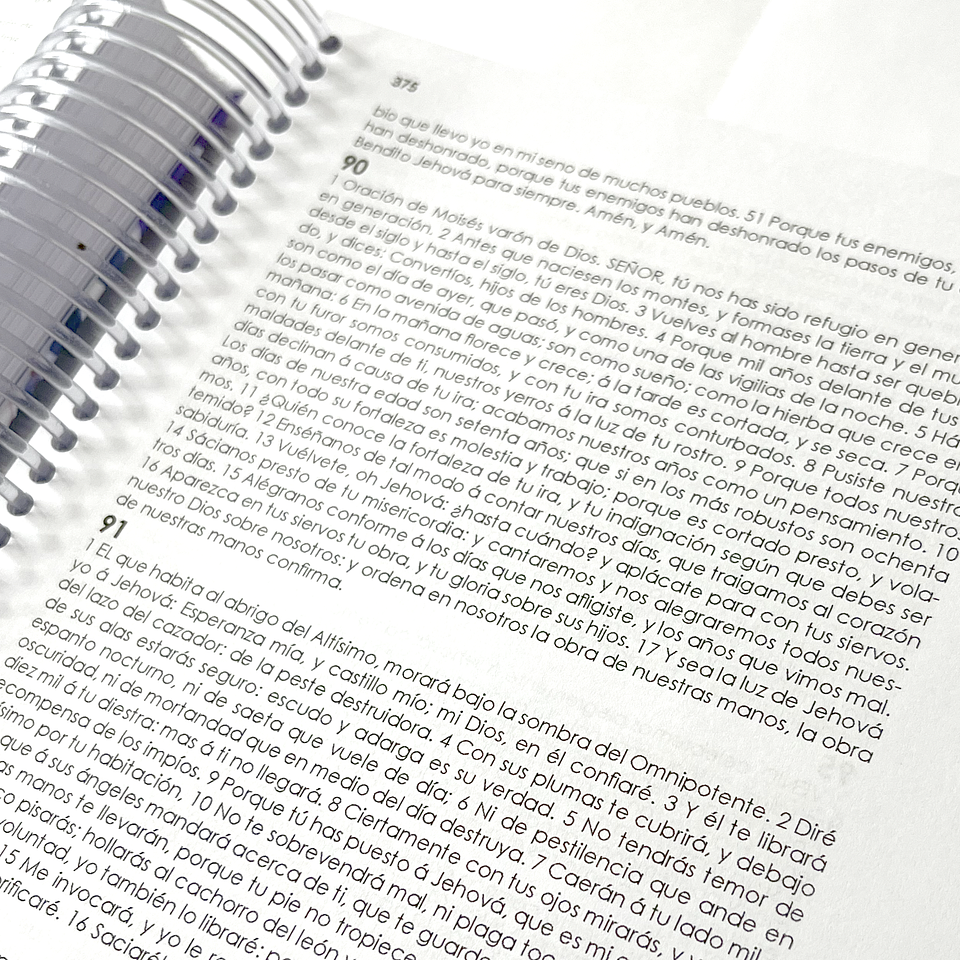 375
bio que llevo yo en mi seno de muchos pueblos. 51 Porque tus enemigos,
han deshonrado, porque tus enemigos han deshonrado los pasos de tu
Bendito Jehová para siempre. Amén, y Amén.
90
1 Oración de Moisés varón de Dios. SEÑOR, tú nos has sido refugio en gener
en generación. 2 Antes que naciesen los montes, y formases la tierra y el mu
desde el siglo y hasta el siglo, tú eres Dios. 3 Vuelves al hombre hasta ser quebr
do, y dices: Convertíos, hijos de los hombres. 4 Porque mil años delante de tus
son como el día de ayer, que pasó, y como una de las vigilias de la noche. 5 Há
los pasar como avenida de aguas; son como sueño; como la hierba que crece en
mañana: 6 En la mañana florece y crece; á la tarde es cortada, y se seca. 7 Porq
con tu furor somos consumidos, y con tu ira somos conturbados. 8 Pusiste nuestr
maldades delante de ti, nuestros yerros á la luz de tu rostro. 9 Porque todos nuestros
días declinan á causa de tu ira; acabamos nuestros años como un pensamiento. 10
Los días de nuestra edad son setenta años; que si en los más robustos son ochenta
años, con todo su fortaleza es molestia y trabajo; porque es cortado presto, y vola-
mos. 11 ¿Quién conoce la fortaleza de tu ira, y tu indignación según que debes ser
temido? 12 Enséñanos de tal modo á contar nuestros días, que traigamos al corazón
sabiduría. 13 Vuélvete, oh Jehová: ¿hasta cuándo? y aplácate para con tus siervos.
14 Sácianos presto de tu misericordia: y cantaremos y nos alegraremos todos nues-
tros días. 15 Alégranos conforme á los días que nos afligiste, y los años que vimos mal.
16 Aparezca en tus siervos tu obra, y tu gloria sobre sus hijos. 17 Y sea la luz de Jehová
nuestro Dios sobre nosotros: y ordena en nosotros la obra de nuestras manos, la obra
de nuestras manos confirma.
91
1 EL que habita al abrigo del Altísimo, morará bajo la sombra del Omnipotente. 2 Diré
yo á Jehová: Esperanza mía, y castillo mío; mi Dios, en él confiaré. 3 Y él te librará
del lazo del cazador: de la peste destruidora. 4 Con sus plumas te cubrirá, y debajo
de sus alas estarás seguro: escudo y adarga es su verdad. 5 No tendrás temor de
espanto nocturno, ni de saeta que vuele de día; 6 Ni de pestilencia que ande en
oscuridad, ni de mortandad que en medio del día destruya. 7 Caerán á tu lado mil
diez mil á tu diestra: mas á ti no llegará. 8 Ciertamente con tus ojos mirarás, y v
ecompensa de los impíos. 9 Porque tú has puesto á Jehová, que es mi
ísimo por tu habitación, 10 No te sobrevendrá mal, ni plaga toc
que á sus ángeles mandará acerca de ti, que te guarde
as manos te llevarán, porque tu pie no tropiece
co pisarás; hollarás al cachorro del león y
voluntad, yo también lo libraré:
15 Me invocará, y yo le r
orificaré. 16 Saciaré